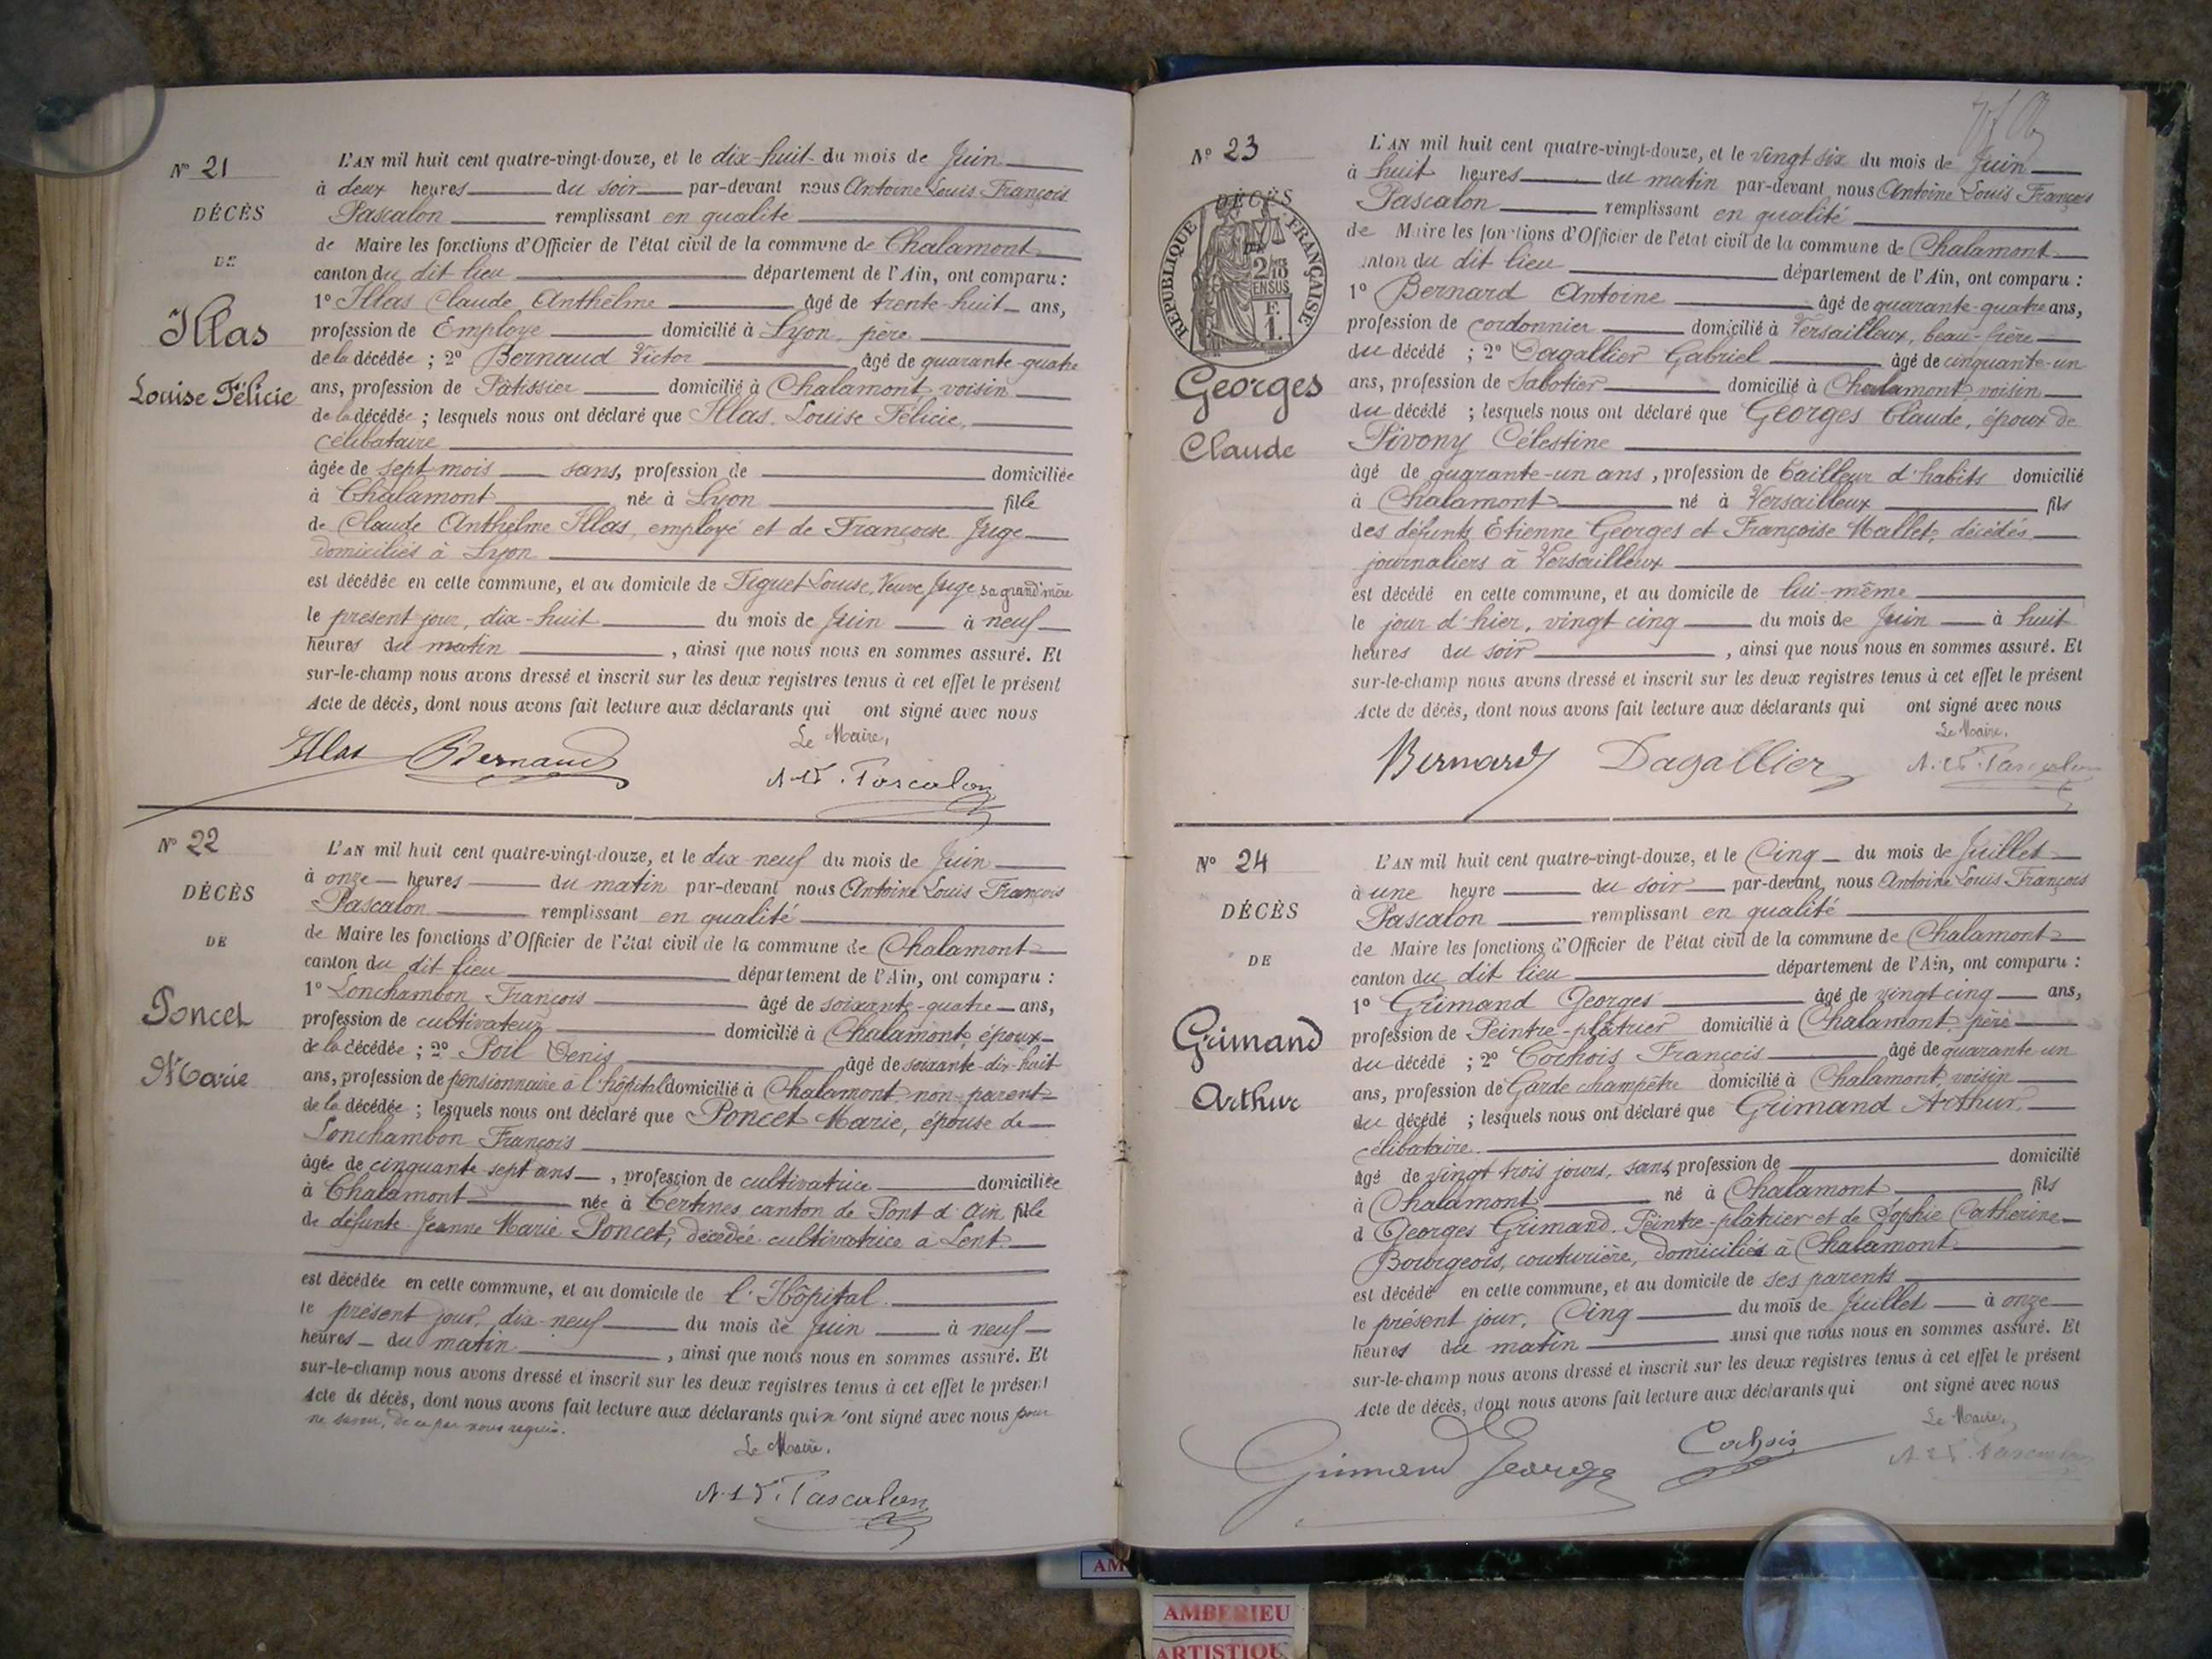 N° 21
DÉCÈS
DE
Illas
Louise Félicie
L'AN mil huit cent quatre-vingt-douze, et le dix-huit du mois de Juin
à deux heures du soir par-devant nous Antoine Louis François
Pascalon remplissant en qualité
de Maire les fonctions d'Officier de l'état civil de la commune de Chalamont
canton du dit lieu département de l'Ain, ont comparu :
1° Illas Claude Anthelme âgé de trente-huit ans,
profession de Employé domicilié à Lyon, père
de la décédée ; 2° Bernaud Victor âgé de quarante-quatre
ans, profession de Pâtissier domicilié à Chalamont, voisin
de la décédée ; lesquels nous ont déclaré que Illas, Louise Félicie,
célibataire
âgée de sept mois sans, profession de domiciliée
à Chalamont née à Lyon fille
de Claude Anthelme Illas, employé et de Françoise Juge
domiciliés à Lyon
est décédée en cette commune, et au domicile de Figuet Louise, Veuve Juge sa grand'mère
le présent jour, dix-huit du mois de Juin à neuf
heures du matin , ainsi que nous nous en sommes assuré. Et
sur-le-champ nous avons dressé et inscrit sur les deux registres tenus à cet effet le présent
Acte de décès, dont nous avons fait lecture aux déclarants qui ont signé avec nous
Le Maire,
Illas Bernaud A. L. F. Pascalon
N° 22
DÉCÈS
DE
Poncet
Marie
L'AN mil huit cent quatre-vingt-douze, et le dix-neuf du mois de Juin
à onze heures du matin par-devant nous Antoine Louis François
Pascalon remplissant en qualité
de Maire les fonctions d'Officier de l'état civil de la commune de Chalamont
canton du dit lieu département de l'Ain, ont comparu :
1° Lonchambon François âgé de soixante-quatre ans,
profession de cultivateur domicilié à Chalamont, époux
de la décédée ; 2° Poil Denis âgé de soixante-dix-huit
ans, profession de pensionnaire à l'hôpital domicilié à Chalamont, non parent
de la décédée ; lesquels nous ont déclaré que Poncet Marie, épouse de
Lonchambon François
âgée de cinquante sept ans , profession de cultivatrice domiciliée
à Chalamont née à Certines canton de Pont d'Ain fille
de défunte Jeanne Marie Poncet, décédée cultivatrice à Lent
est décédée en cette commune, et au domicile de l'Hôpital
le présent jour, dix-neuf du mois de juin à neuf
heures du matin , ainsi que nous nous en sommes assuré. Et
sur-le-champ nous avons dressé et inscrit sur les deux registres tenus à cet effet le présent
Acte de décès, dont nous avons fait lecture aux déclarants qui n'ont signé avec nous pour
ne savoir, de ce par nous requis.
Le Maire,
A. L. F. Pascalon
N° 23
DÉCÈS
RÉPUBLIQUE FRANÇAISE
2/10
EN SUS
F.
1.
Georges
Claude
L'AN mil huit cent quatre-vingt-douze, et le vingt six du mois de Juin
à huit heures du matin par-devant nous Antoine Louis François
Pascalon remplissant en qualité
de Maire les fonctions d'Officier de l'état civil de la commune de Chalamont
canton du dit lieu département de l'Ain, ont comparu :
1° Bernard Antoine âgé de quarante-quatre ans,
profession de cordonnier domicilié à Versailleux, beau-frère
du décédé ; 2° Dagallier Gabriel âgé de cinquante-un
ans, profession de Sabotier domicilié à Chalamont, voisin
du décédé ; lesquels nous ont déclaré que Georges Claude, époux de
Pivony Célestine
âgé de quarante-un ans, profession de tailleur d'habits domicilié
à Chalamont né à Versailleux fils
des défunts Etienne Georges et Françoise Mallet, décédés
journaliers à Versailleux
est décédé en cette commune, et au domicile de lui-même
le jour d'hier, vingt cinq du mois de Juin à huit
heures du soir , ainsi que nous nous en sommes assuré. Et
sur-le-champ nous avons dressé et inscrit sur les deux registres tenus à cet effet le présent
Acte de décès, dont nous avons fait lecture aux déclarants qui ont signé avec nous
Le Maire,
Bernard Dagallier A. L. F. Pascalon
N° 24
DÉCÈS
DE
Grimand
Arthur
L'AN mil huit cent quatre-vingt-douze, et le Cinq du mois de Juillet
à une heure du soir par-devant nous Antoine Louis François
Pascalon remplissant en qualité
de Maire les fonctions d'Officier de l'état civil de la commune de Chalamont
canton du dit lieu département de l'Ain, ont comparu :
1° Grimand Georges âgé de vingt cinq ans,
profession de Peintre-plâtrier domicilié à Chalamont, père
du décédé ; 2° Cochois François âgé de quarante un
ans, profession de Garde champêtre domicilié à Chalamont, voisin
du décédé ; lesquels nous ont déclaré que Grimand Arthur,
célibataire
âgé de vingt trois jours, sans profession de domicilié
à Chalamont né à Chalamont fils
d Georges Grimand, Peintre-plâtrier et de Sophie Catherine
Bourgeois, couturière, domiciliés à Chalamont
est décédé en cette commune, et au domicile de ses parents
le présent jour, Cinq du mois de Juillet à onze
heures du matin ainsi que nous nous en sommes assuré. Et
sur-le-champ nous avons dressé et inscrit sur les deux registres tenus à cet effet le présent
Acte de décès, dont nous avons fait lecture aux déclarants qui ont signé avec nous
Le Maire,
Grimand George Cochois A. L. F. Pascalon
AM
AMBERIEU
ARTISTIQU